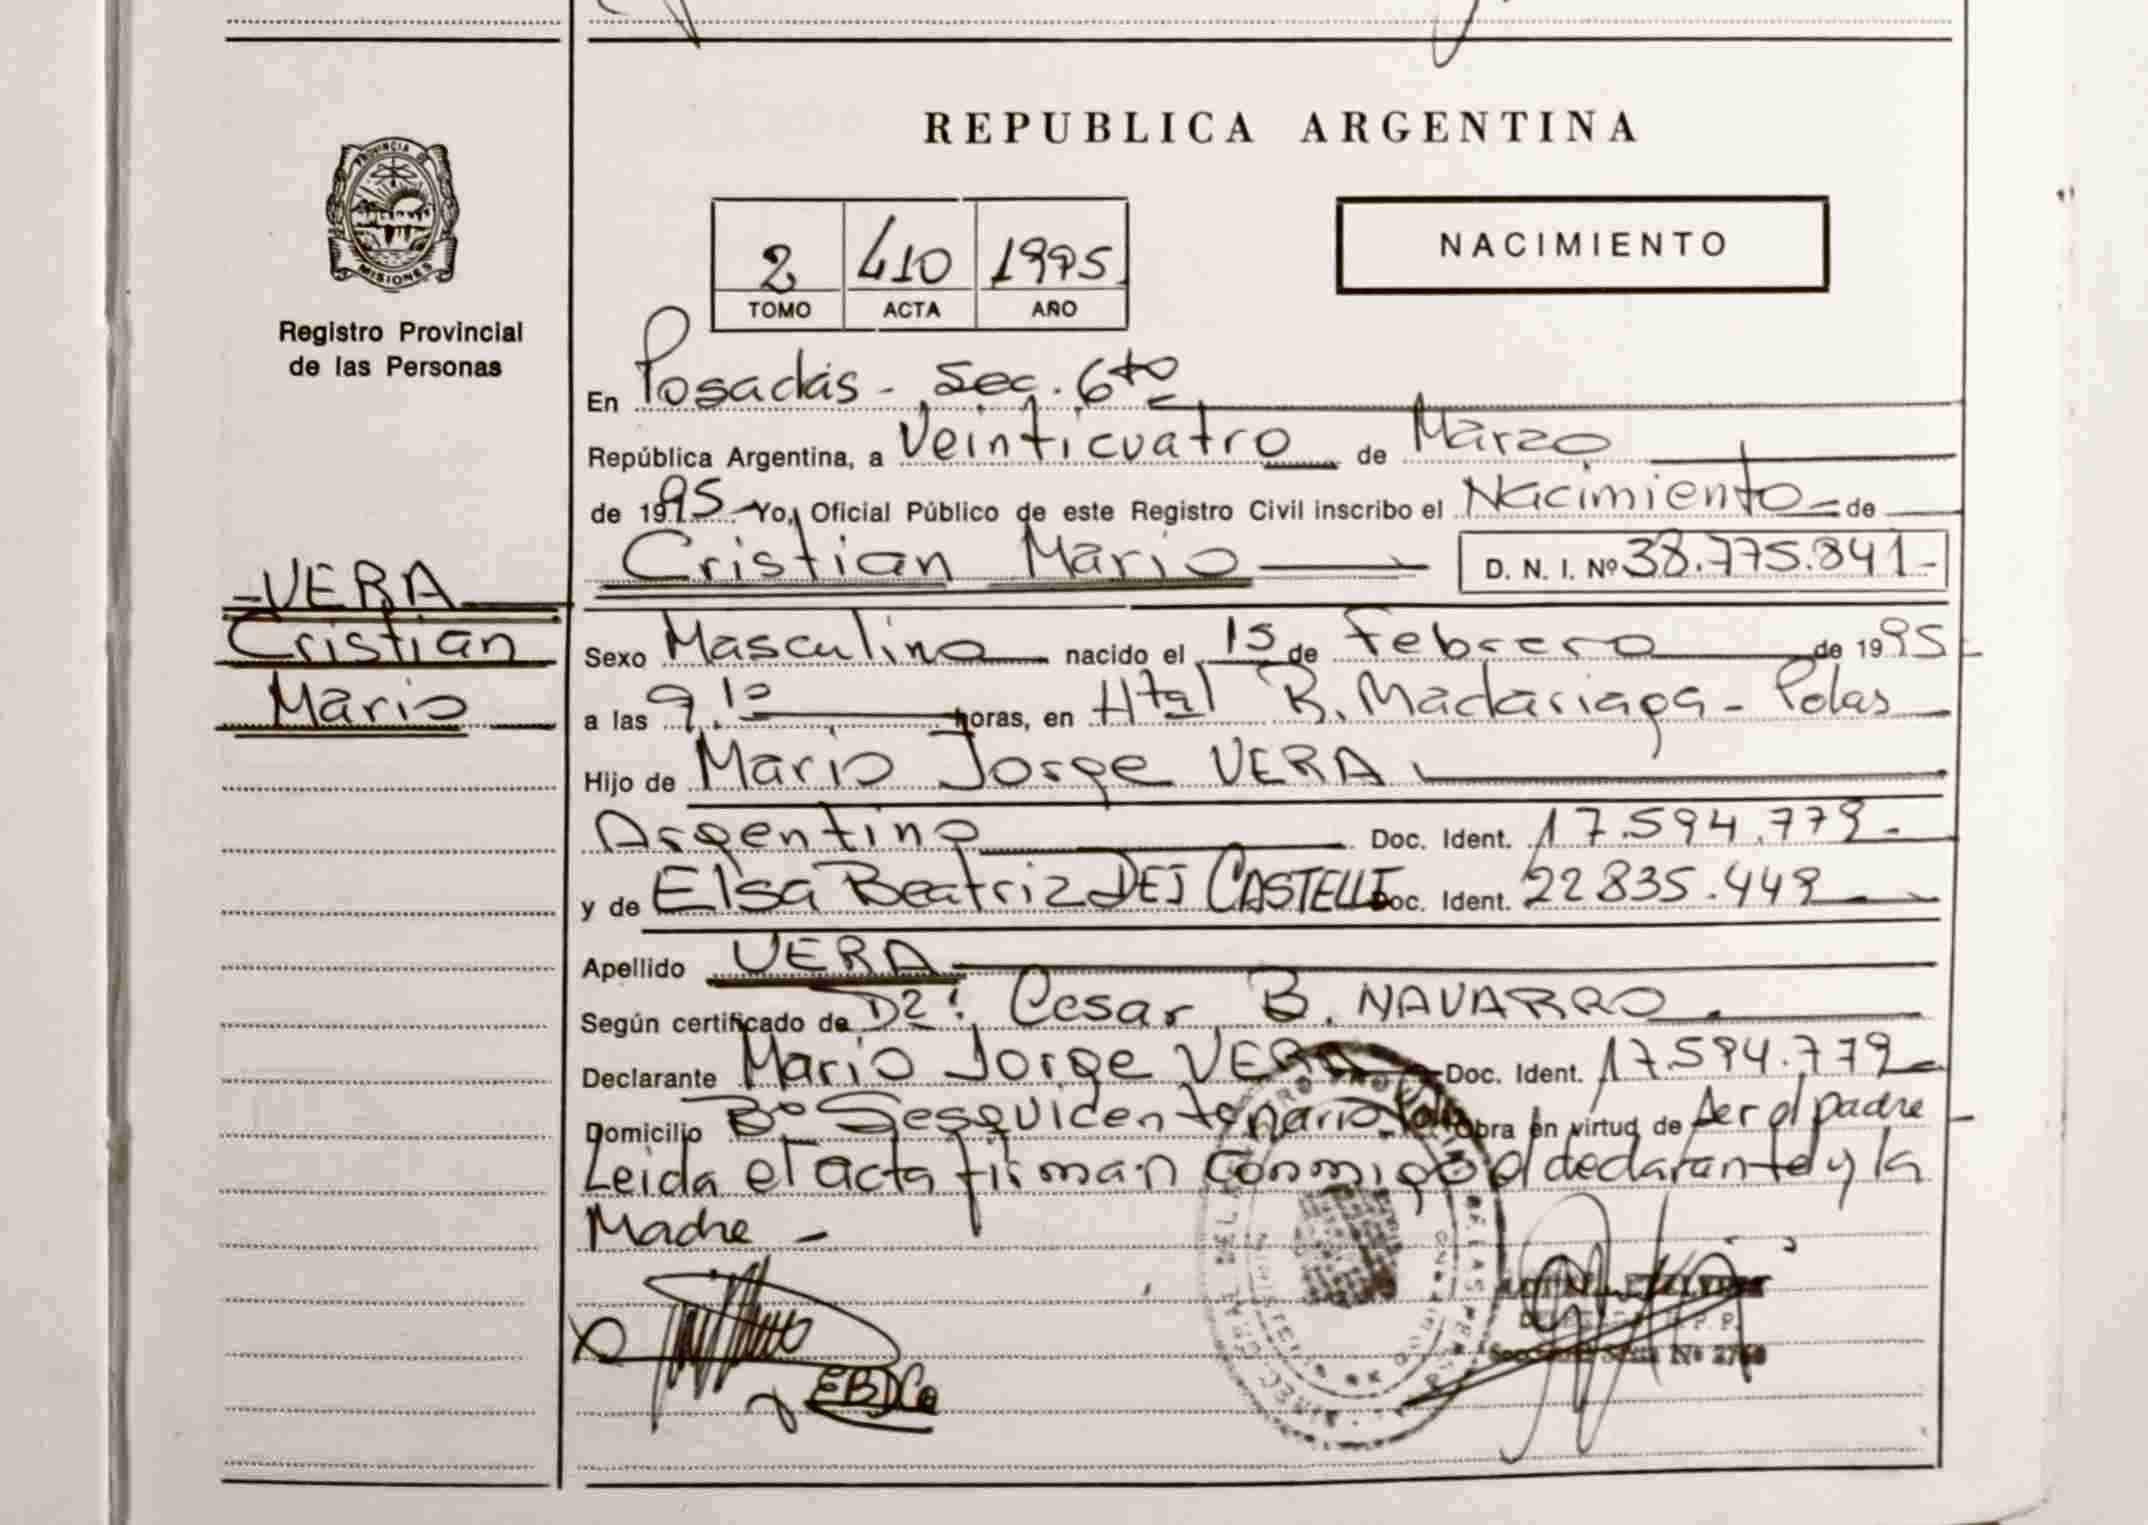 REPUBLICA ARGENTINA
PROVINCIA DE
MISIONES
Registro Provincial
de las Personas
2 410 1995
TOMO ACTA AÑO
NACIMIENTO
En Posadas - Sec. 6to
República Argentina, a Veinticuatro de Marzo
de 1995 Yo, Oficial Público de este Registro Civil inscribo el Nacimiento de
Cristian Mario D. N. I. Nº 38.775.841-
-VERA
Cristian
Mario
Sexo Masculino nacido el 15 de Febrero de 1995-
a las 9,10 horas, en Htal R. Madariaga - Pdas
Hijo de Mario Jorge VERA
Argentino Doc. Ident. 17.594.779-
y de Elsa Beatriz DEJ CASTELLI Doc. Ident. 22835.449
Apellido VERA
Según certificado de Dr: Cesar B. NAVARRO
Declarante Mario Jorge VERA Doc. Ident. 17.594.779
Domicilio Bº Sesquicentenario Obra en virtud de ser el padre
Leida el acta firman conmigo el declarante y la
Madre -
EBDCa